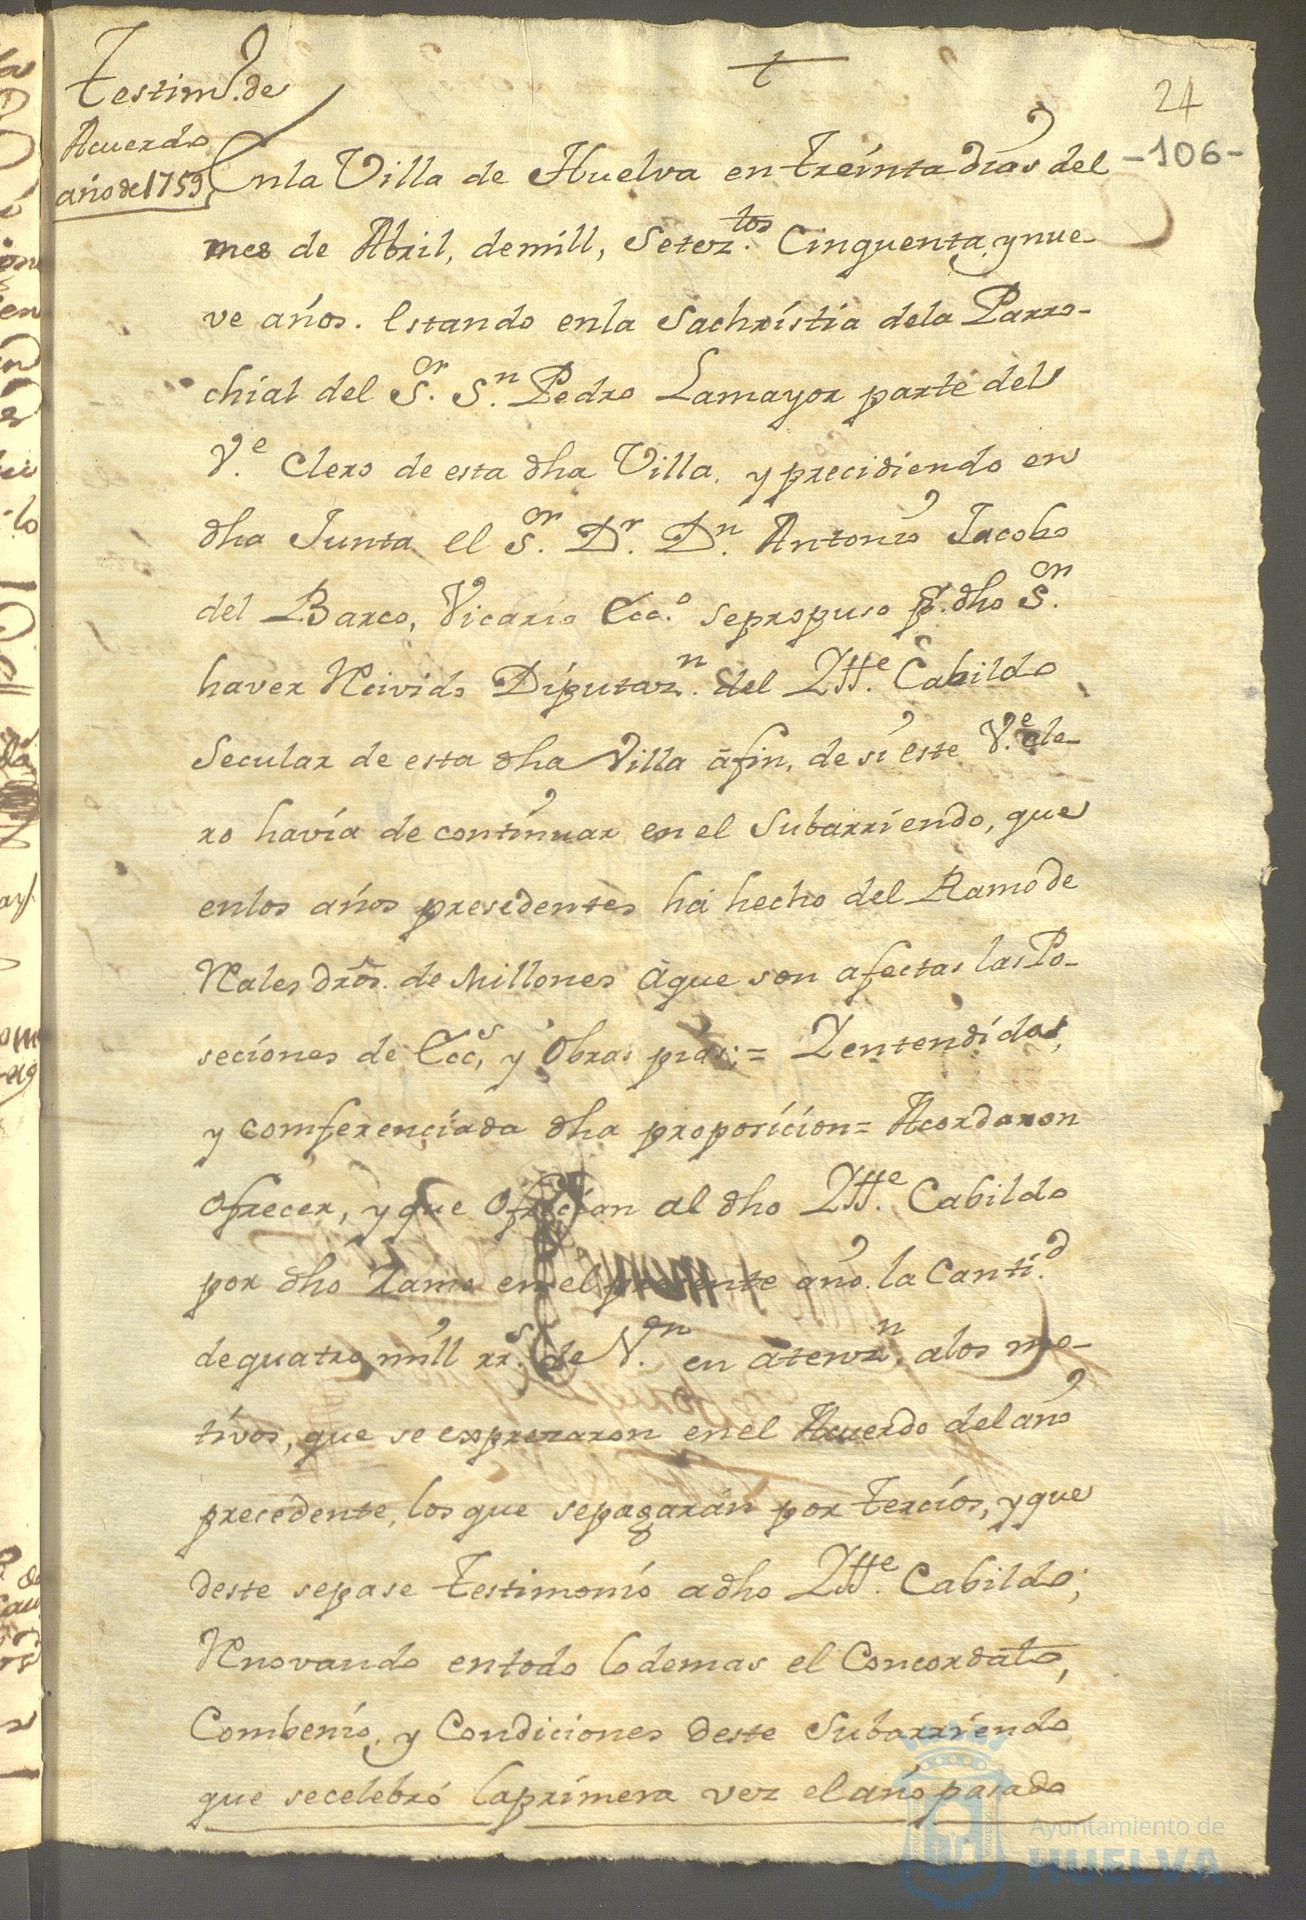 t
24
-106-
Testim.º de
Acuerdo
año de 1759
En la Villa de Huelva en treinta dias del
mes de Abril, de mill, Setez.tos Cinquenta, y nue-
ve años. Estando en la Sachristia de la Parro-
chial del S.or S.n Pedro La mayor parte del
V.e Clero de esta dha Villa, y precidiendo en
dha Junta el S.or D.r D.n Antonio Jacobo
del Barco, Vicario Ecc.o se propuso p.r dho S.or
haver Rcivido Diputaz.n del Ill.e Cabildo
Secular de esta dha Villa a fin, de si este V.e Cle-
ro havia de continuar en el Subarriendo, que
en los años presedentes ha hecho del Ramo de
Rales dros. de Millones a que son afectas las Po-
seciones de Ecc.s, y Obras pias; = Y entendidos,
y comferenciada dha proposicion = Acordaron
ofrecer, y que ofrecian al dho Ill.e Cabildo
por dho Ramo en el presente año la Canti.d
de quatro mill rr.s de V.on en atenz.n a los mo-
tivos, que se exprezaron en el Acuerdo del año
precedente, los que se pagarán por tercios, y que
deste se pase testimonio a dho Ill.e Cabildo;
Rnovando en todo lo demas el Concordato,
Combenio, y Condiciones deste Subarriendo
que se celebró la primera vez el año pasado
Ayuntamiento de
HUELVA